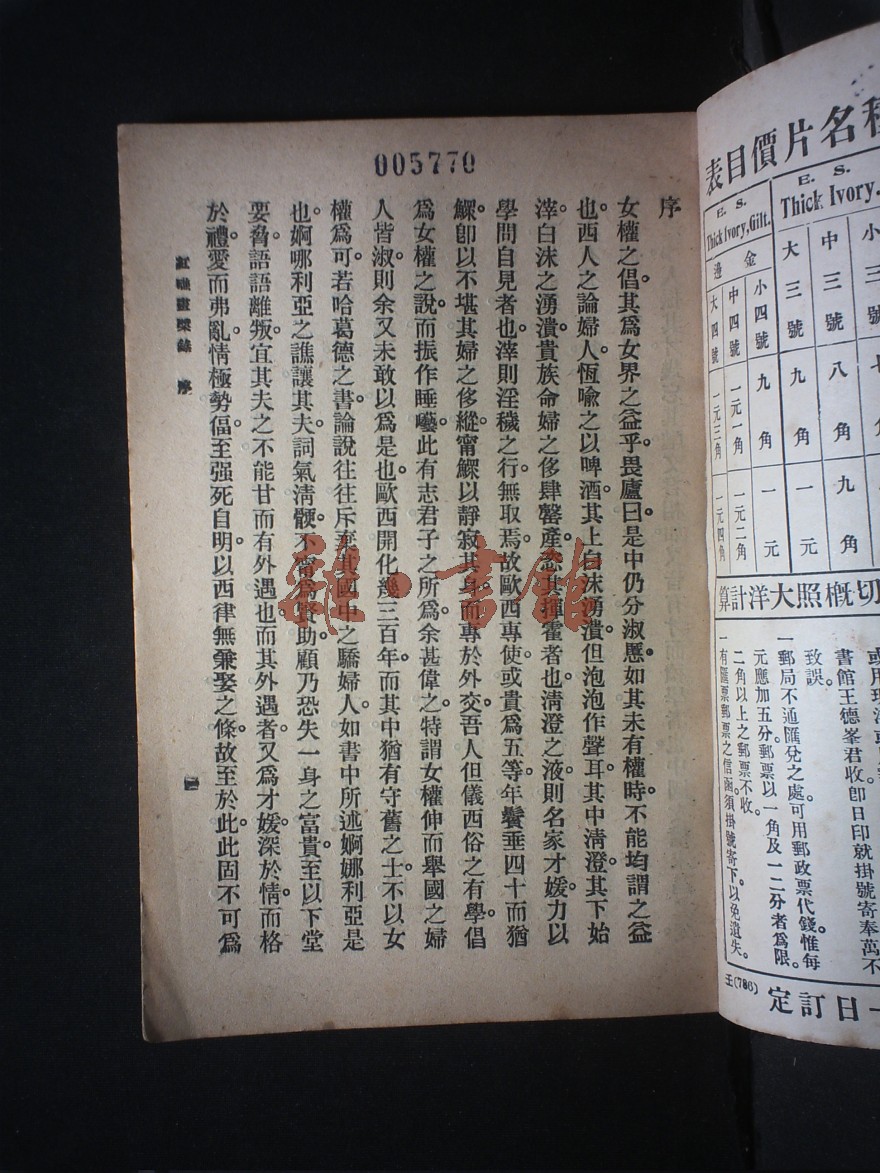 005770
序
女權之倡。其爲女界之益乎。畏廬曰。是中仍分淑慝。如其未有權時。不能均謂之益
也。西人之論婦人。恆喩之以啤酒。其上白沫湧潰。但泡泡作聲耳。其中清澄。其下始
滓。白沫之湧潰。貴族命婦之侈肆罄產。恣其揮霍者也。清澄之液。則名家才媛。力以
學問自見者也。滓則淫穢之行。無取焉。故歐西專使。或貴爲五等。年鬢垂四十而猶
鰥。卽以不堪其婦之侈縱。甯鰥以靜寂其身。而專於外交。吾人但儀西俗之有學。倡
爲女權之說。而振作睡囈。此有志君子之所爲。余甚偉之。特謂女權伸而舉國之婦
人皆淑。則余又未敢以爲是也。歐西開化幾三百年。而其中猶有守舊之士。不以女
權爲可。若哈葛德之書。論說往往斥棄其國中之驕婦人。如書中所述婀娜利亞是
也。婀哪利亞之譙讓其夫。詞氣清骾。不甯爲賢助。顧乃恐失一身之富貴。至以下堂
要脅。語語離叛。宜其夫之不能甘而有外遇也。而其外遇者。又爲才媛。深於情而格
於禮。愛而弗亂。情極勢偪。至强死自明。以西律無兼娶之條。故至於此。此固不可爲
紅礁畫槳錄 序
一
種名片價目表
E. S.
Thick Ivory.
小三號
中三號
大三號
七角
八角
九角
九角
一元
E. S.
Thick Ivory, Gilt.
金邊
小四號
中四號
大四號
九角
一元一角
一元三角
一元
一元二角
一元四角
切槪照大洋計算
書館王德峯君收卽日印就掛號寄奉萬不
致誤。
一郵局不通匯兌之處。可用郵政票代錢惟每
元應加五分。郵票以一角及一二分者爲限。
二角以上之郵票不收。
一有匯票郵票之信函須掛號寄下以免遺失。
壬(786)
一日訂定
雅·書館